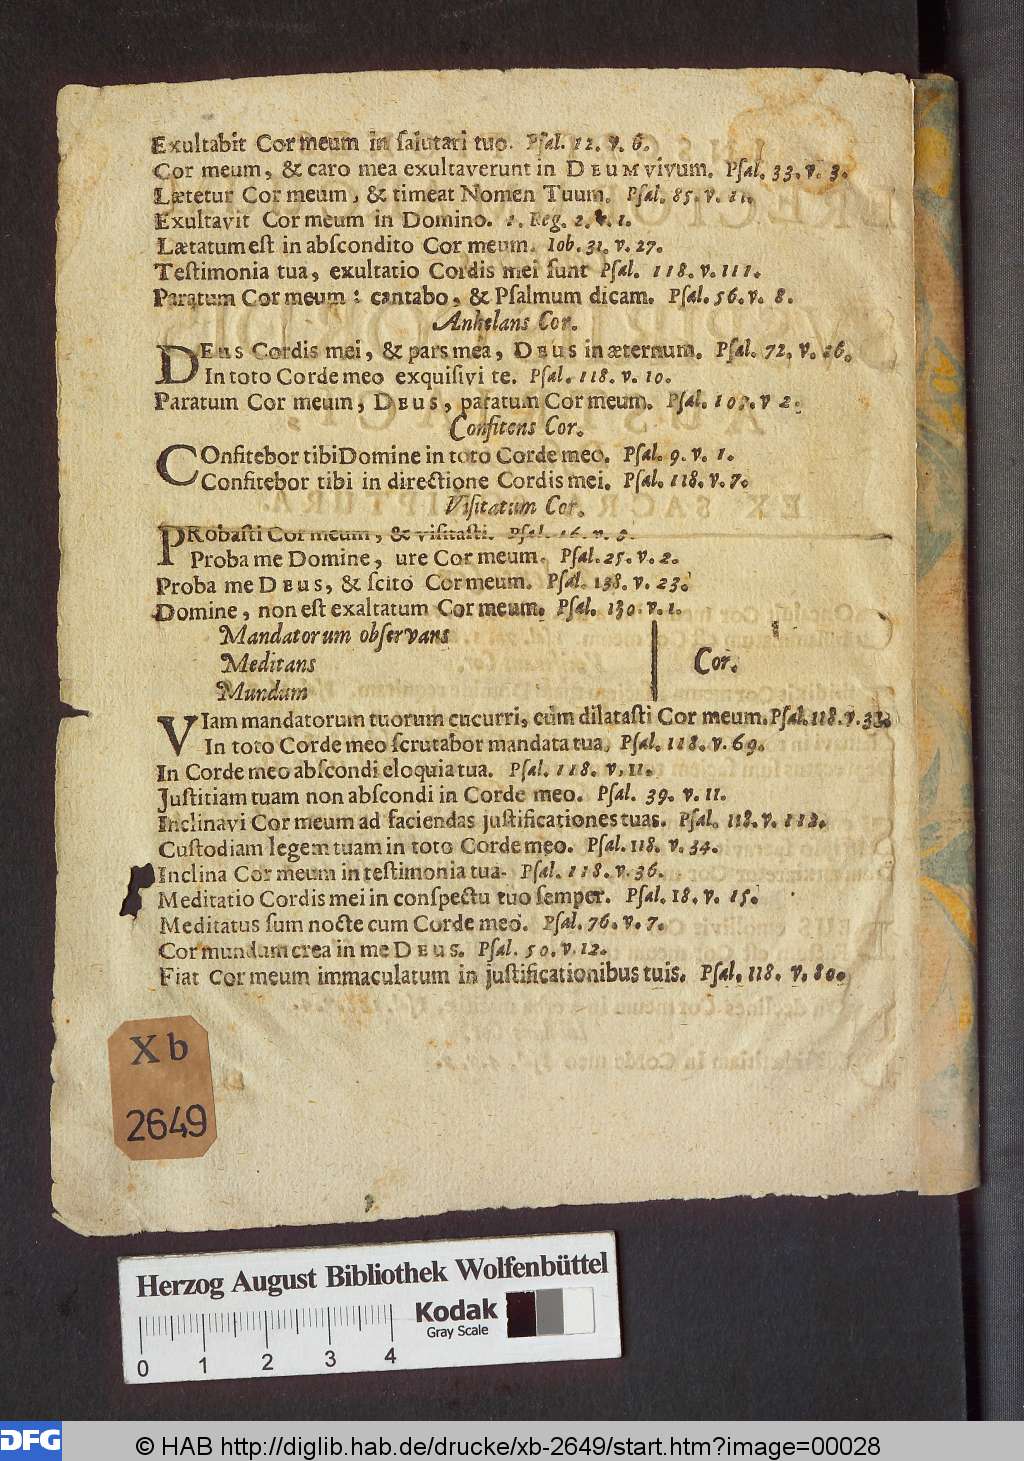 Exultabit Cor meum in salutari tuo. Psal. 12. v. 6.
Cor meum, & caro mea exultaverunt in DEUM vivum. Psal. 33. v. 3.
Lætetur Cor meum, & timeat Nomen Tuum. Psal. 85. v. 11.
Exultavit Cor meum in Domino. 1. Reg. 2. v. 1.
Lætatum est in abscondito Cor meum. Iob. 31. v. 27.
Testimonia tua, exultatio Cordis mei sunt Psal. 118. v. 111.
Paratum Cor meum: cantabo, & Psalmum dicam. Psal. 56. v. 8.
Anhelans Cor.
DEus Cordis mei, & pars mea, DEUS in æternum. Psal. 72. v. 26.
In toto Corde meo exquisivi te. Psal. 118. v. 10.
Paratum Cor meum, DEUS, paratum Cor meum. Psal. 107. v 2.
Confitens Cor.
COnfitebor tibi Domine in toto Corde meo. Psal. 9. v. 1.
Confitebor tibi in directione Cordis mei. Psal. 118. v. 7.
Visitatum Cor.
PRobasti Cor meum, & visitasti. Psal. 16. v.
Proba me Domine, ure Cor meum. Psal. 25. v. 2.
Proba me DEUS, & scito Cor meum. Psal. 138. v. 23.
Domine, non est exaltatum Cor meum. Psal. 130. v. 1.
Mandatorum observans
Meditans
Mundum
Cor.
VIam mandatorum tuorum cucurri, cùm dilatasti Cor meum. Psal. 118. v. 33.
In toto Corde meo scrutabor mandata tua. Psal. 118. v. 69.
In Corde meo abscondi eloquia tua. Psal. 118. v. 11.
Justitiam tuam non abscondi in Corde meo. Psal. 39. v. 11.
Inclinavi Cor meum ad faciendas justificationes tuas. Psal. 118. v. 113.
Custodiam legem tuam in toto Corde meo. Psal. 118. v. 34.
Inclina Cor meum in testimonia tua. Psal. 118. v. 36.
Meditatio Cordis mei in conspectu tuo semper. Psal. 18. v. 15.
Meditatus sum nocte cum Corde meo. Psal. 76. v. 7.
Cor mundum crea in me DEUS. Psal. 50. v. 12.
Fiat Cor meum immaculatum in justificationibus tuis. Psal. 118. v. 80.
Xb
2649
Herzog August Bibliothek Wolfenbüttel
Kodak
Gray Scale
0 1 2 3 4
DFG
© HAB http://diglib.hab.de/drucke/xb-2649/start.htm?image=00028